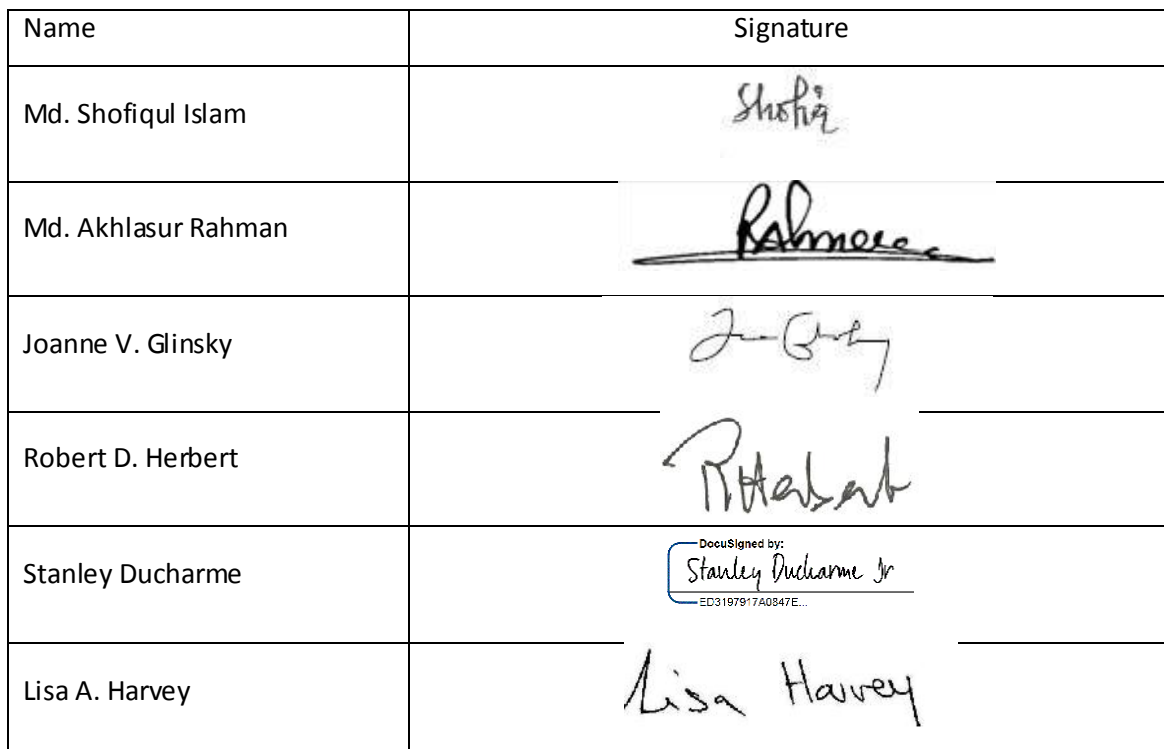 Name Signature
Md. Shofiqul Islam Shofiq
Md. Akhlasur Rahman
Joanne V. Glinsky
Robert D. Herbert RHerbert
Stanley Ducharme
DocuSigned by:
Stanley Ducharme Jr
ED3197917A0847E...
Lisa A. Harvey Lisa Harvey